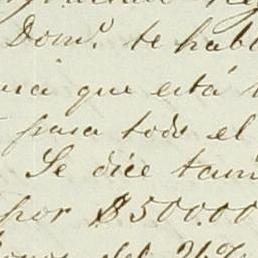 Domº te habl
que está
para todo el
Se dice tam
por $500.00
del